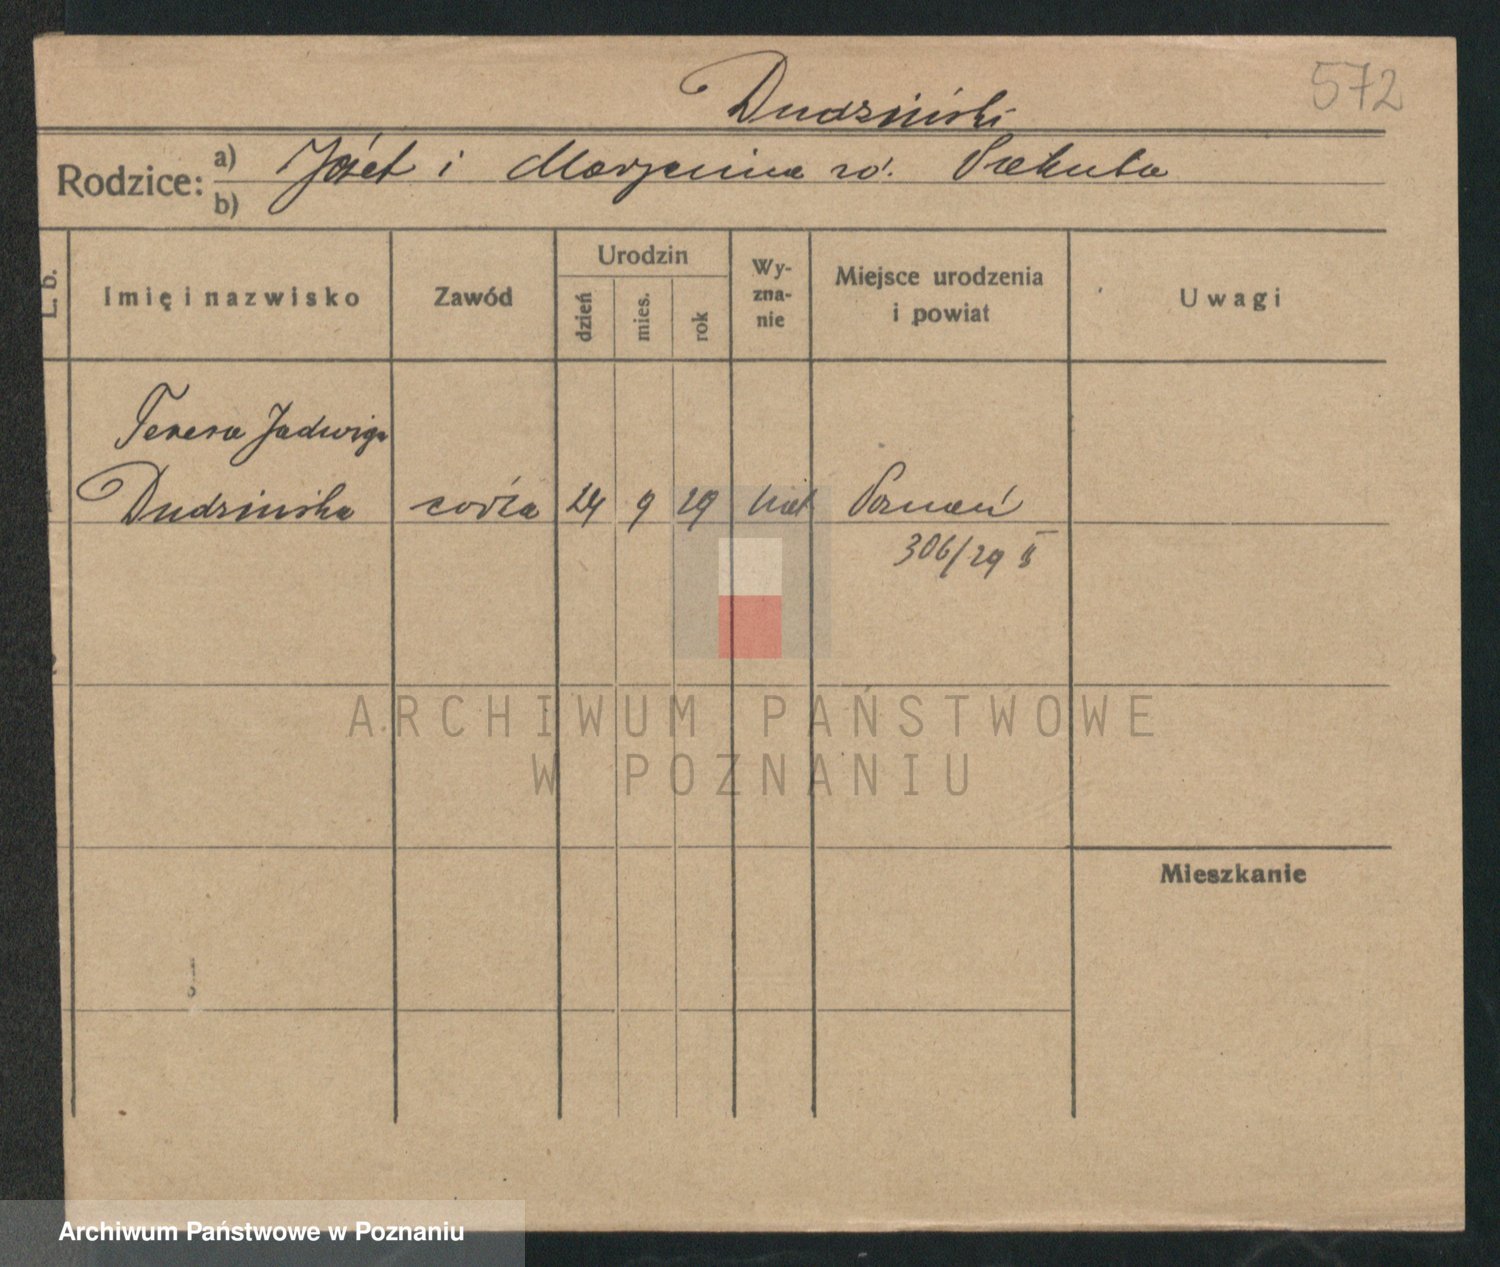 572
Dudziński
Rodzice: a) Józef i Marjanna ro.
b)
L. b.
Imię i nazwisko
Zawód
Urodzin
dzień
mies.
rok
Wy-
zna-
nie
Miejsce urodzenia
i powiat
Uwagi
Teresa Jadwiga
Dudzińska córka 24 9 29 kat Poznań
306/29 II
ARCHIWUM PAŃSTWOWE
W POZNANIU
Mieszkanie
Archiwum Państwowe w Poznaniu